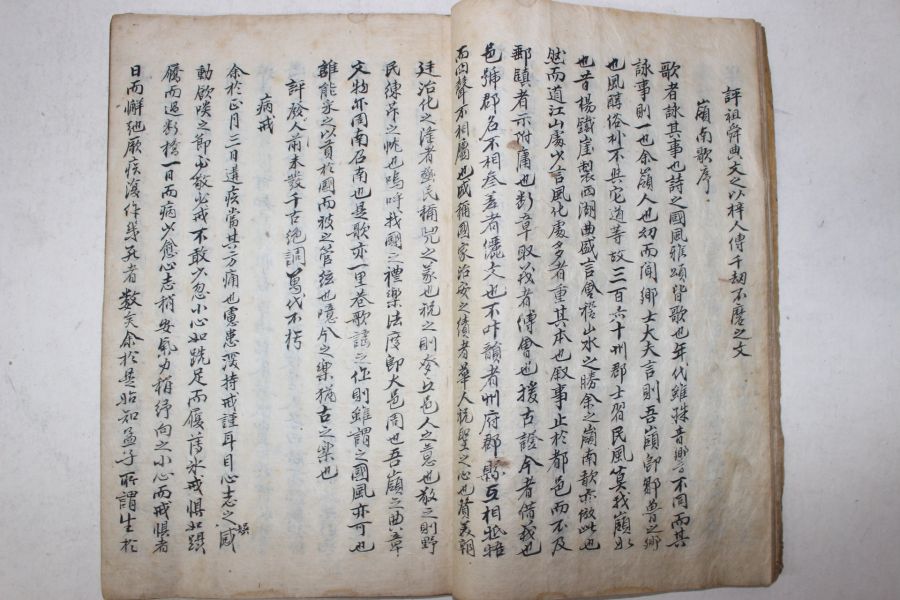 評祖舜典文之以梓人傳千劫不磨之文
嶺南歌序
歌者詠其事也詩之國風雅頌皆歌也年代雖殊音響不同而其
詠事則一也余嶺人也幼而聞鄉士大夫言則吾嶺卽鄒魯之鄉
也風醇俗朴不與它道等故三百六十州郡士習民風莫我嶺如
也昔楊鐵崖製西湖曲盛言會稽山水之勝余之嶺南歌亦倣此也
然而道江山處少言風化處多者重其本也叙事止於都邑而不及
郵鎭者示附庸也斷章取義者傳會也援古證今者借我也
邑號郡名不相叄差者儷文也不叶韻者州府郡縣互相牴牾
而四聲不相屬也盛稱國家治安之績者華人祝聖之心也贊美朝
廷治化之隆者堯民稱兕之義也祝之則麥丘邑人之意也敎之則野
民練帛之帨也嗚呼我國之禮樂法度卽大邑周也吾嶺之典章
文物亦周南召南也是歌亦一里巷歌謠之作則雖謂之國風亦可也
誰能采之以貢於國而被之管絃也噫今之樂猶古之樂也
評發人前未發千古絶調萬代不朽
病戒
余於正月三日遘疾當其方痛也慮患深持戒謹耳目心志之感
動飮啖之節必敬必戒不敢少忽小心如跣足而履薄氷戒惧如躡
屩而過斷橋一日而病少愈心志稍安氣力稍紓向之小心而戒惧者
日而懈弛厥疾復作幾死者數矣余於是始知孟子所謂生於